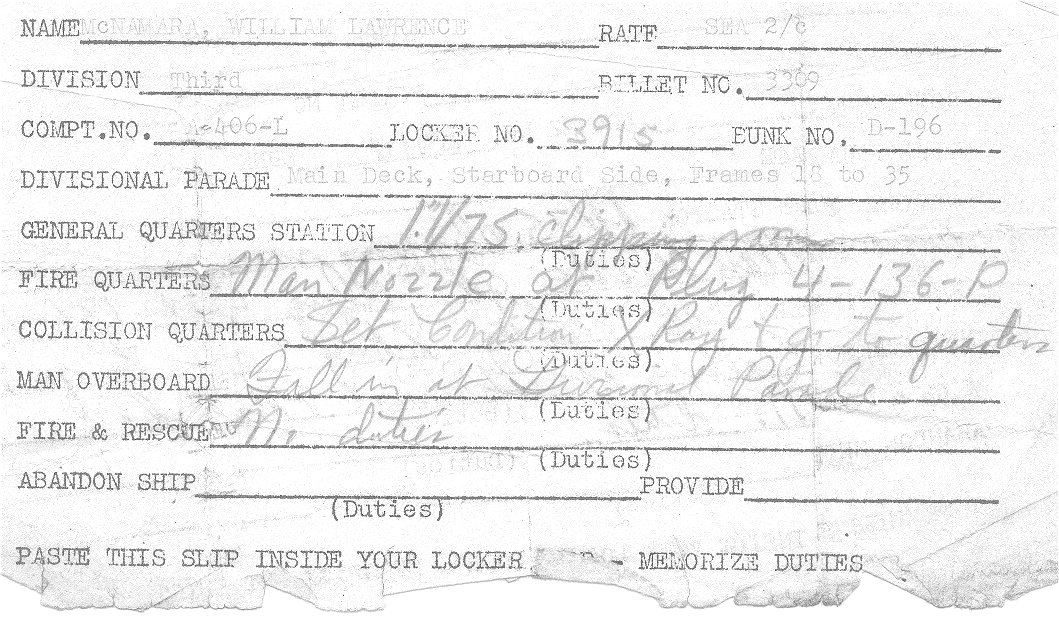 NAME McNAMARA, WILLIAM LAWRENCE RATE SEA 2/c
DIVISION Third BILLET NO. 3309
COMPT.NO. A-406-L LOCKER NO. 3915 BUNK NO. D-196
DIVISIONAL PARADE Main Deck, Starboard Side, Frames 18 to 35
GENERAL QUARTERS STATION 1.1/75 clipping room
(Duties)
FIRE QUARTERS Man Nozzle at Plug 4-136-P
(Duties)
COLLISION QUARTERS Set Condition X Ray & go to quarters
(Duties)
MAN OVERBOARD Fall in at Divisional Parade
(Duties)
FIRE & RESCUE No duties
(Duties)
ABANDON SHIP PROVIDE
(Duties)
PASTE THIS SLIP INSIDE YOUR LOCKER - MEMORIZE DUTIES